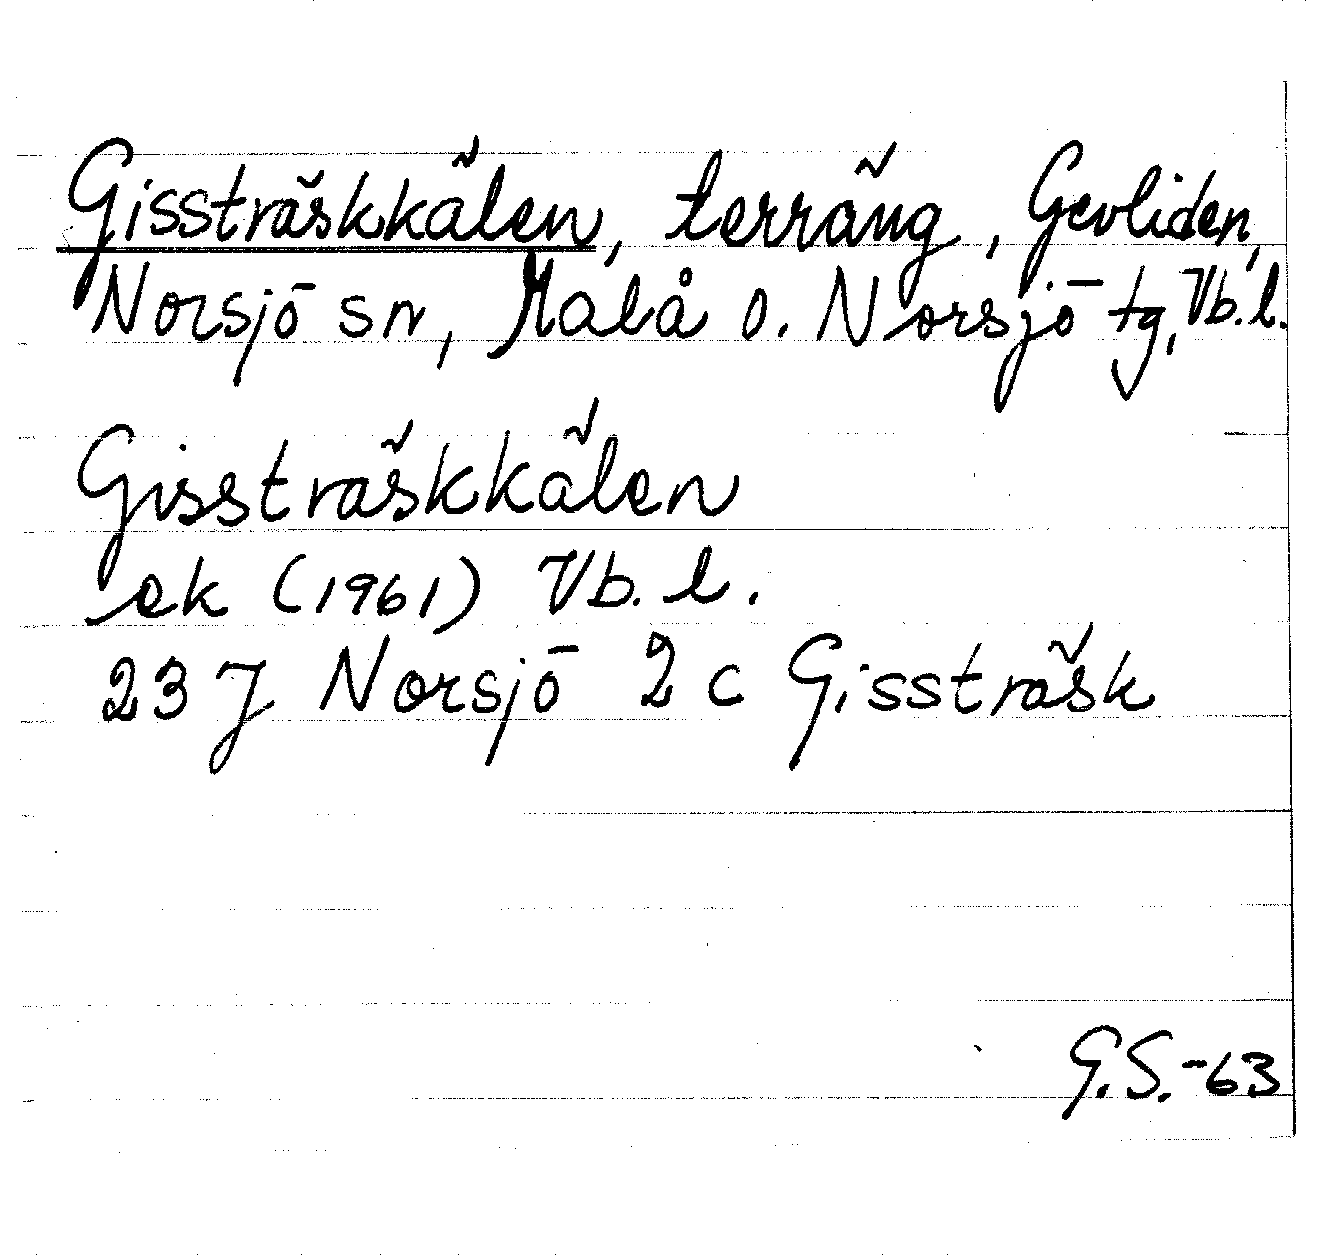 Gissträskkälen, terräng, Gevliden,
Norsjö sn, Malå o. Norsjö tg, Vb. l.
Gissträskkälen
ek (1961) Vb. l.
23 J Norsjö 2 c Gissträsk
G.S.-63